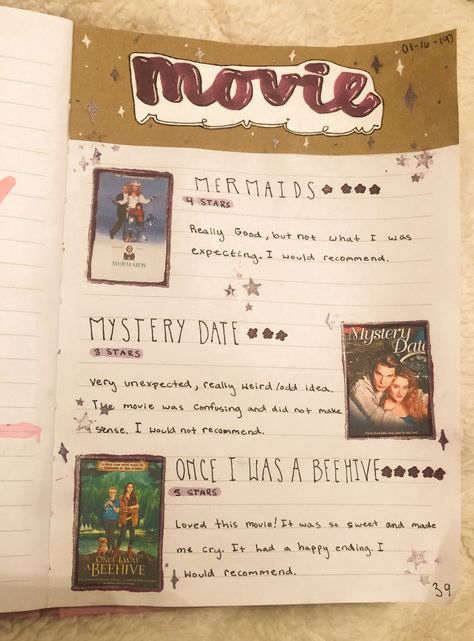 (11-16-19)
movie
review
MERMAIDS
4 STARS
Really Good, but not what I was
expecting. I would recommend.
MERMAIDS
MYSTERY DATE
3 STARS
Very unexpected, really weird/odd idea.
The movie was confusing and did not make
sense. I would not recommend.
Mystery
Date
ONCE I WAS A BEEHIVE
5 STARS
Loved this movie! It was so sweet and made
me cry. It had a happy ending. I
would recommend.
ONCE I WAS
A
BEEHIVE
39